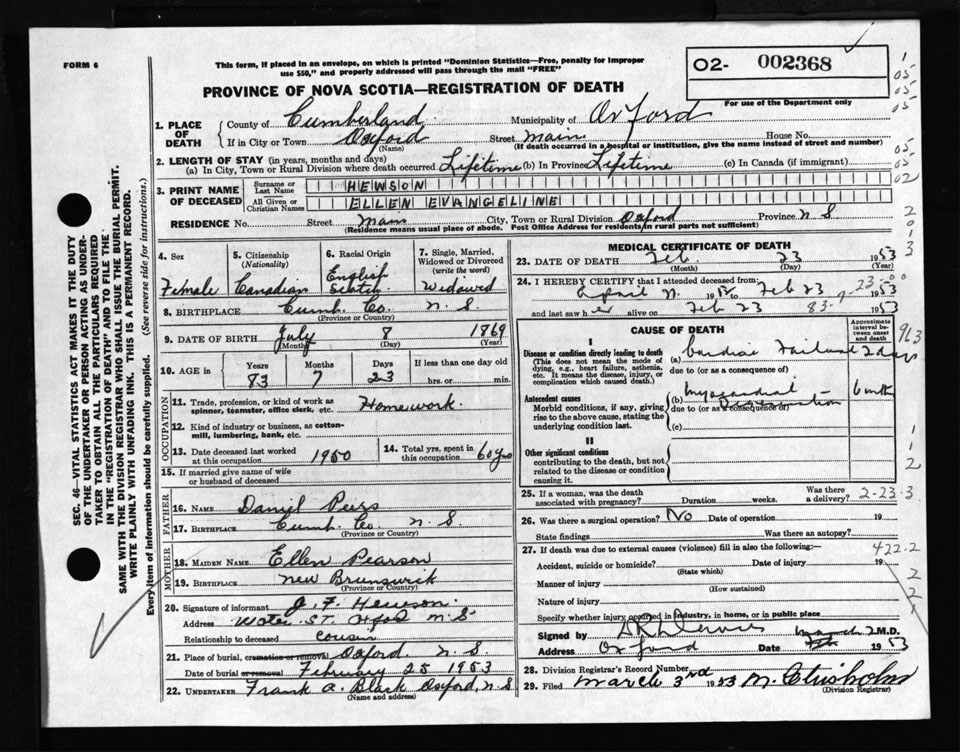 FORM 6
This form, if placed in an envelope, on which is printed "Dominion Statistics—Free, penalty for improper
use $50," and properly addressed will pass through the mail "FREE"
O2- 002368
For use of the Department only
PROVINCE OF NOVA SCOTIA—REGISTRATION OF DEATH
1. PLACE OF DEATH
County of Cumberland Municipality of Oxford
If in City or Town Oxford Street Main House No.
(Name) (If death occurred in a hospital or institution, give the name instead of street and number)
2. LENGTH OF STAY (in years, months and days)
(a) In City, Town or Rural Division where death occurred Lifetime (b) In Province Lifetime (c) In Canada (if immigrant)
3. PRINT NAME OF DECEASED
Surname or Last Name HEWSON
All Given or Christian Names ELLEN EVANGELINE
RESIDENCE No. Street Main City, Town or Rural Division Oxford Province N S
(Residence means usual place of abode. Post Office Address for residents in rural parts not sufficient)
4. Sex Female
5. Citizenship (Nationality) Canadian
6. Racial Origin English Scotch
7. Single, Married, Widowed or Divorced (write the word) Widowed
8. BIRTHPLACE Cumb. Co. N. S.
(Province or Country)
9. DATE OF BIRTH July 8 1869
(Month) (Day) (Year)
10. AGE in Years 83 Months 7 Days 23 If less than one day old hrs. or min.
OCCUPATION
11. Trade, profession, or kind of work as spinner, teamster, office clerk, etc. Homework.
12. Kind of industry or business, as cotton-mill, lumbering, bank, etc.
13. Date deceased last worked at this occupation 1950
14. Total yrs. spent in this occupation 60 yrs
15. If married give name of wife or husband of deceased
FATHER
16. NAME Daniel
17. BIRTHPLACE Cumb. Co. N. S.
(Province or Country)
MOTHER
18. MAIDEN NAME Ellen Pearson
19. BIRTHPLACE New Brunswick
(Province or Country)
20. Signature of informant J. F. Hewson.
Address Water ST. Oxford N S
Relationship to deceased cousin
21. Place of burial, cremation or removal Oxford. N. S.
Date of burial or removal February 25 1953
22. UNDERTAKER Frank A. Black Oxford, N. S
(Name and address)
MEDICAL CERTIFICATE OF DEATH
23. DATE OF DEATH Feb. 23 1953
(Month) (Day) (Year)
24. I HEREBY CERTIFY that I attended deceased from:
April 19 to Feb 23 1953
and last saw her alive on Feb 23 1953
83-7-23-00
CAUSE OF DEATH
Approximate interval between onset and death
I
Disease or condition directly leading to death
(This does not mean the mode of dying, e.g., heart failure, asthenia, etc. It means the disease, injury, or complication which caused death.)
(a) Cardiac Failure 2 days
due to (or as a consequence of)
Antecedent causes
Morbid conditions, if any, giving rise to the above cause, stating the underlying condition last.
(b) Myocardial Degeneration 6 months
due to (or as a consequence of)
(c)
II
Other significant conditions
contributing to the death, but not related to the disease or condition causing it.
25. If a woman, was the death associated with pregnancy? Duration weeks. Was there a delivery? 2-23-3
26. Was there a surgical operation? No Date of operation 19
State findings Was there an autopsy?
27. If death was due to external causes (violence) fill in also the following:—
422.2
Accident, suicide or homicide? Date of injury 19
(State which)
Manner of injury
(How sustained)
Nature of injury
Specify whether injury occurred in industry, in home, or in public place
Signed by M.D.
Address Oxford Date March 2 1953
28. Division Registrar's Record Number
29. Filed March 3rd 1953 M. Chisholm
(Division Registrar)
SEC. 46—VITAL STATISTICS ACT MAKES IT THE DUTY
OF THE UNDERTAKER OR PERSON ACTING AS UNDER-
TAKER TO OBTAIN ALL THE PARTICULARS REQUIRED
IN THE "REGISTRATION OF DEATH" AND TO FILE THE
SAME WITH THE DIVISION REGISTRAR WHO SHALL ISSUE THE BURIAL PERMIT.
WRITE PLAINLY WITH UNFADING INK. THIS IS A PERMANENT RECORD.
Every item of information should be carefully supplied. (See reverse side for instructions.)
1
05
05
05
05
05
02
2
0
1
3
913
1
1
2
2
2
1